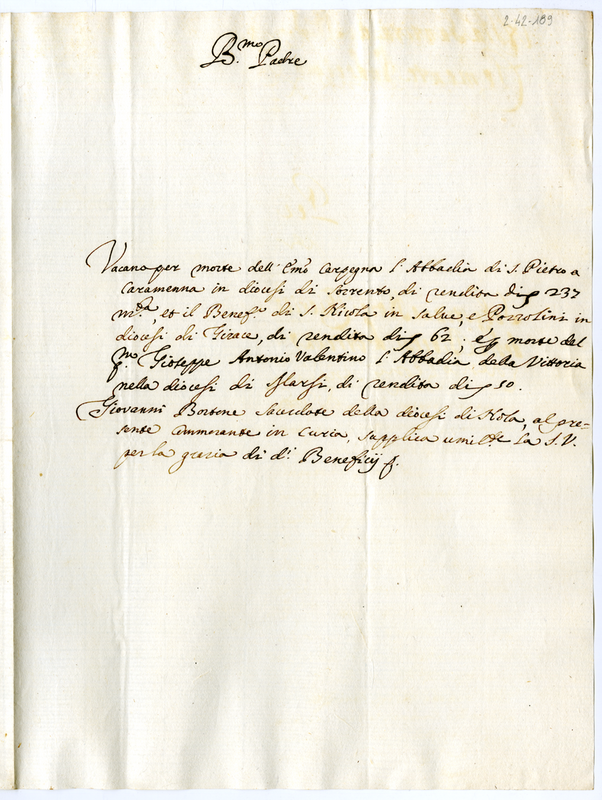 2-42-189
B.mo Padre
Vacano per morte dell' Emo Carpegna l'Abbadia di S. Pietro a
Caramenna in diocesi di Sorrento, di rendita di 237
m.ta, et il Benef.o di S. Nicola in Salue, e Pozzolini in
diocesi di Girace, di rendita di 62; e morte del
q.m Gioseppe Antonio Valentino l'Abbadia della Vittoria
nella diocesi di Marsi, di rendita di 50.
Giovanni Bortone sacerdote della diocesi di Nola, al pre=
sente commorante in Curia, supplica umilte la S.V.
per la grazia di d.i Beneficij